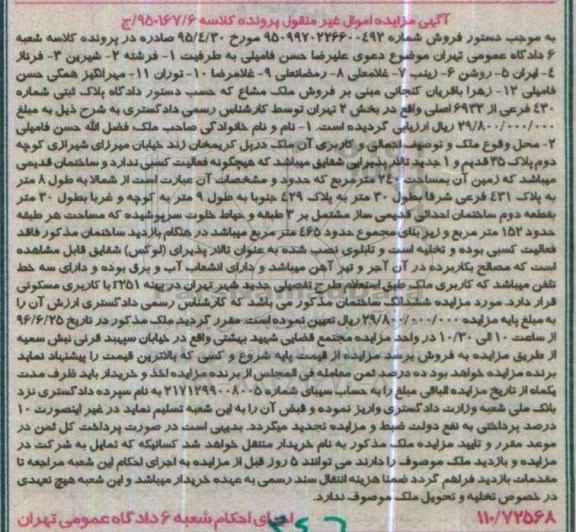 آگهی مزایده اموال غیر منقول پرونده کلاسه ۹۵۰۱۶۷/۶/ج
به موجب دستور فروش شماره ۹۵۰۹۹۷۰۲۲۶۶۰۰۴۹۲ مورخ ۹۵/۴/۳۰ صادره در پرونده کلاسه شعبه
۶ دادگاه عمومی تهران موضوع دعوی علیرضا حسن فامیلی به طرفیت ۱- فرشته ۲- شیرین ۳- فرناز
۴- ایران ۵- روشن ۶- زینب ۷- غلامعلی ۸- رمضانعلی ۹- غلامرضا ۱۰- توران ۱۱- مهرانگیز همگی حسن
فامیلی ۱۲- زهرا باقریان کنجانی مبنی بر فروش ملک مشاع که حسب دستور دادگاه پلاک ثبتی شماره
۴۳۰ فرعی از ۶۹۳۲ اصلی واقع در بخش ۲ تهران توسط کارشناس رسمی دادگستری به شرح ذیل به مبلغ
۲۹/۸۰۰/۰۰۰/۰۰۰ ریال ارزیابی گردیده است. ۱- نام و نام خانوادگی صاحب ملک فضل الله حسن فامیلی
۲- محل وقوع ملک و توصیف اجمالی و کاربری آن ملک در پل کریمخان زند خیابان میرزای شیرازی کوچه
دوم پلاک ۳۵ قدیم و ۱ جدید تالار پذیرایی شقایق میباشد که هیچگونه فعالیت کسبی ندارد و ساختمان قدیمی
میباشد که زمین آن بمساحت ۲۴۰ مترمربع که حدود و مشخصات آن عبارت است از شمالا به طول ۸ متر
به پلاک ۴۳۱ فرعی شرقا بطول ۳۰ متر به پلاک ۴۲۹ جنوبا به طول ۹ متر به کوچه و غربا بطول ۳۰ متر
بقطعه دوم ساختمان احداثی قدیمی ساز مشتمل بر ۳ طبقه و حیاط خلوت سرپوشیده که مساحت هر طبقه
حدود ۱۵۲ متر مربع و زیر بنای مجموع حدود ۴۶۵ متر مربع میباشد در هنگام بازدید ساختمان مذکور فاقد
فعالیت کسبی بوده و تخلیه است و تابلوی نصب شده به عنوان تالار پذیرای (لوکس) شقایق قابل مشاهده
است که مصالح بکاربرده در آن آجر و تیر آهن میباشد و دارای انشعاب آب و برق بوده و دارای سه خط
تلفن میباشد که کاربری ملک طبق استعلام طرح تفصیلی جدید شهر تهران در پهنه r۲۵۱ با کاربری مسکونی
قرار دارد. مورد مزایده ششدانگ ساختمان مذکور می باشد که کارشناس رسمی دادگستری ارزش آن را
به مبلغ پایه مزایده ۲۹/۸۰۰/۰۰۰/۰۰۰ ریال تعیین نموده است مقرر گردید ملک مذکور در تاریخ ۹۶/۶/۲۵
از ساعت ۱۰ الی ۱۰/۳۰ در واحد مزایده مجتمع قضایی شهید بهشتی واقع در خیابان سپهبد قرنی نبش سمیه
از طریق مزایده به فروش برسد مزایده از قیمت پایه شروع و کسی که بالاترین قیمت را پیشنهاد نماید
برنده مزایده خواهد بود ده درصد ثمن معامله فی المجلس از برنده مزایده اخذ و خریدار باید ظرف مدت
یکماه از تاریخ مزایده الباقی مبلغ را به حساب سیبای شماره ۲۱۷۱۲۹۹۰۰۸۰۰۵ به نام سپرده دادگستری نزد
بانک ملی شعبه وزارت دادگستری واریز نموده و قبض آن را به این شعبه تسلیم نماید در غیر اینصورت ۱۰
درصد پرداختی به نفع دولت ضبط و مزایده تجدید میگردد. بدیهی است در صورت پرداخت کل ثمن در
موعد مقرر و تایید مزایده ملک مذکور به نام خریدار منتقل خواهد شد کسانیکه که تمایل به شرکت در
مزایده و بازدید ملک موصوف را دارند می توانند ۵ روز قبل از مزایده به اجرای احکام این شعبه مراجعه تا
مقدمات بازدید فراهم گردد ضمنا هزینه انتقال سند رسمی به عهده خریدار میباشد و این شعبه هیچ تعهدی
در خصوص تخلیه و تحویل ملک موصوف ندارد.
۱۱۰/۷۲۵۶۸ اجرای احکام شعبه ۶ دادگاه عمومی تهران